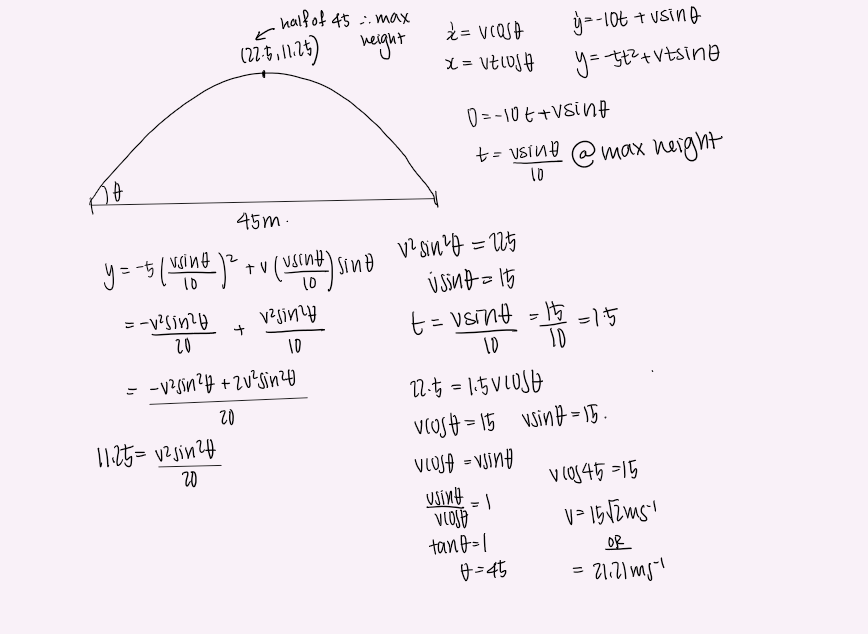 half of 45 ∴ max
height
(22.5, 11.25)
ẋ = vcosθ
ẏ = -10t + vsinθ
x = vtcosθ
y = -5t² + vtsinθ
0 = -10t + vsinθ
t = vsinθ/10 @ max height
θ
45m.
y = -5(vsinθ/10)² + v(vsinθ/10)sinθ
= -v²sin²θ/20 + v²sin²θ/10
= -v²sin²θ + 2v²sin²θ/20
11.25 = v²sin²θ/20
v²sin²θ = 225
vsinθ = 15
t = vsinθ/10 = 15/10 = 1.5
22.5 = 1.5vcosθ
vcosθ = 15 vsinθ = 15.
vcosθ = vsinθ
vsinθ/vcosθ = 1
tanθ = 1
θ = 45
vcos45 = 15
v = 15√2ms⁻¹
OR
= 21.21ms⁻¹